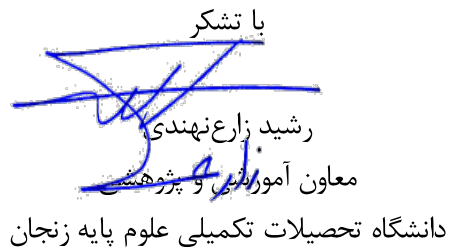 با تشکر
رشید زارع‌نهندی
معاون آموزشی و پژوهشی
دانشگاه تحصیلات تکمیلی علوم پایه زنجان